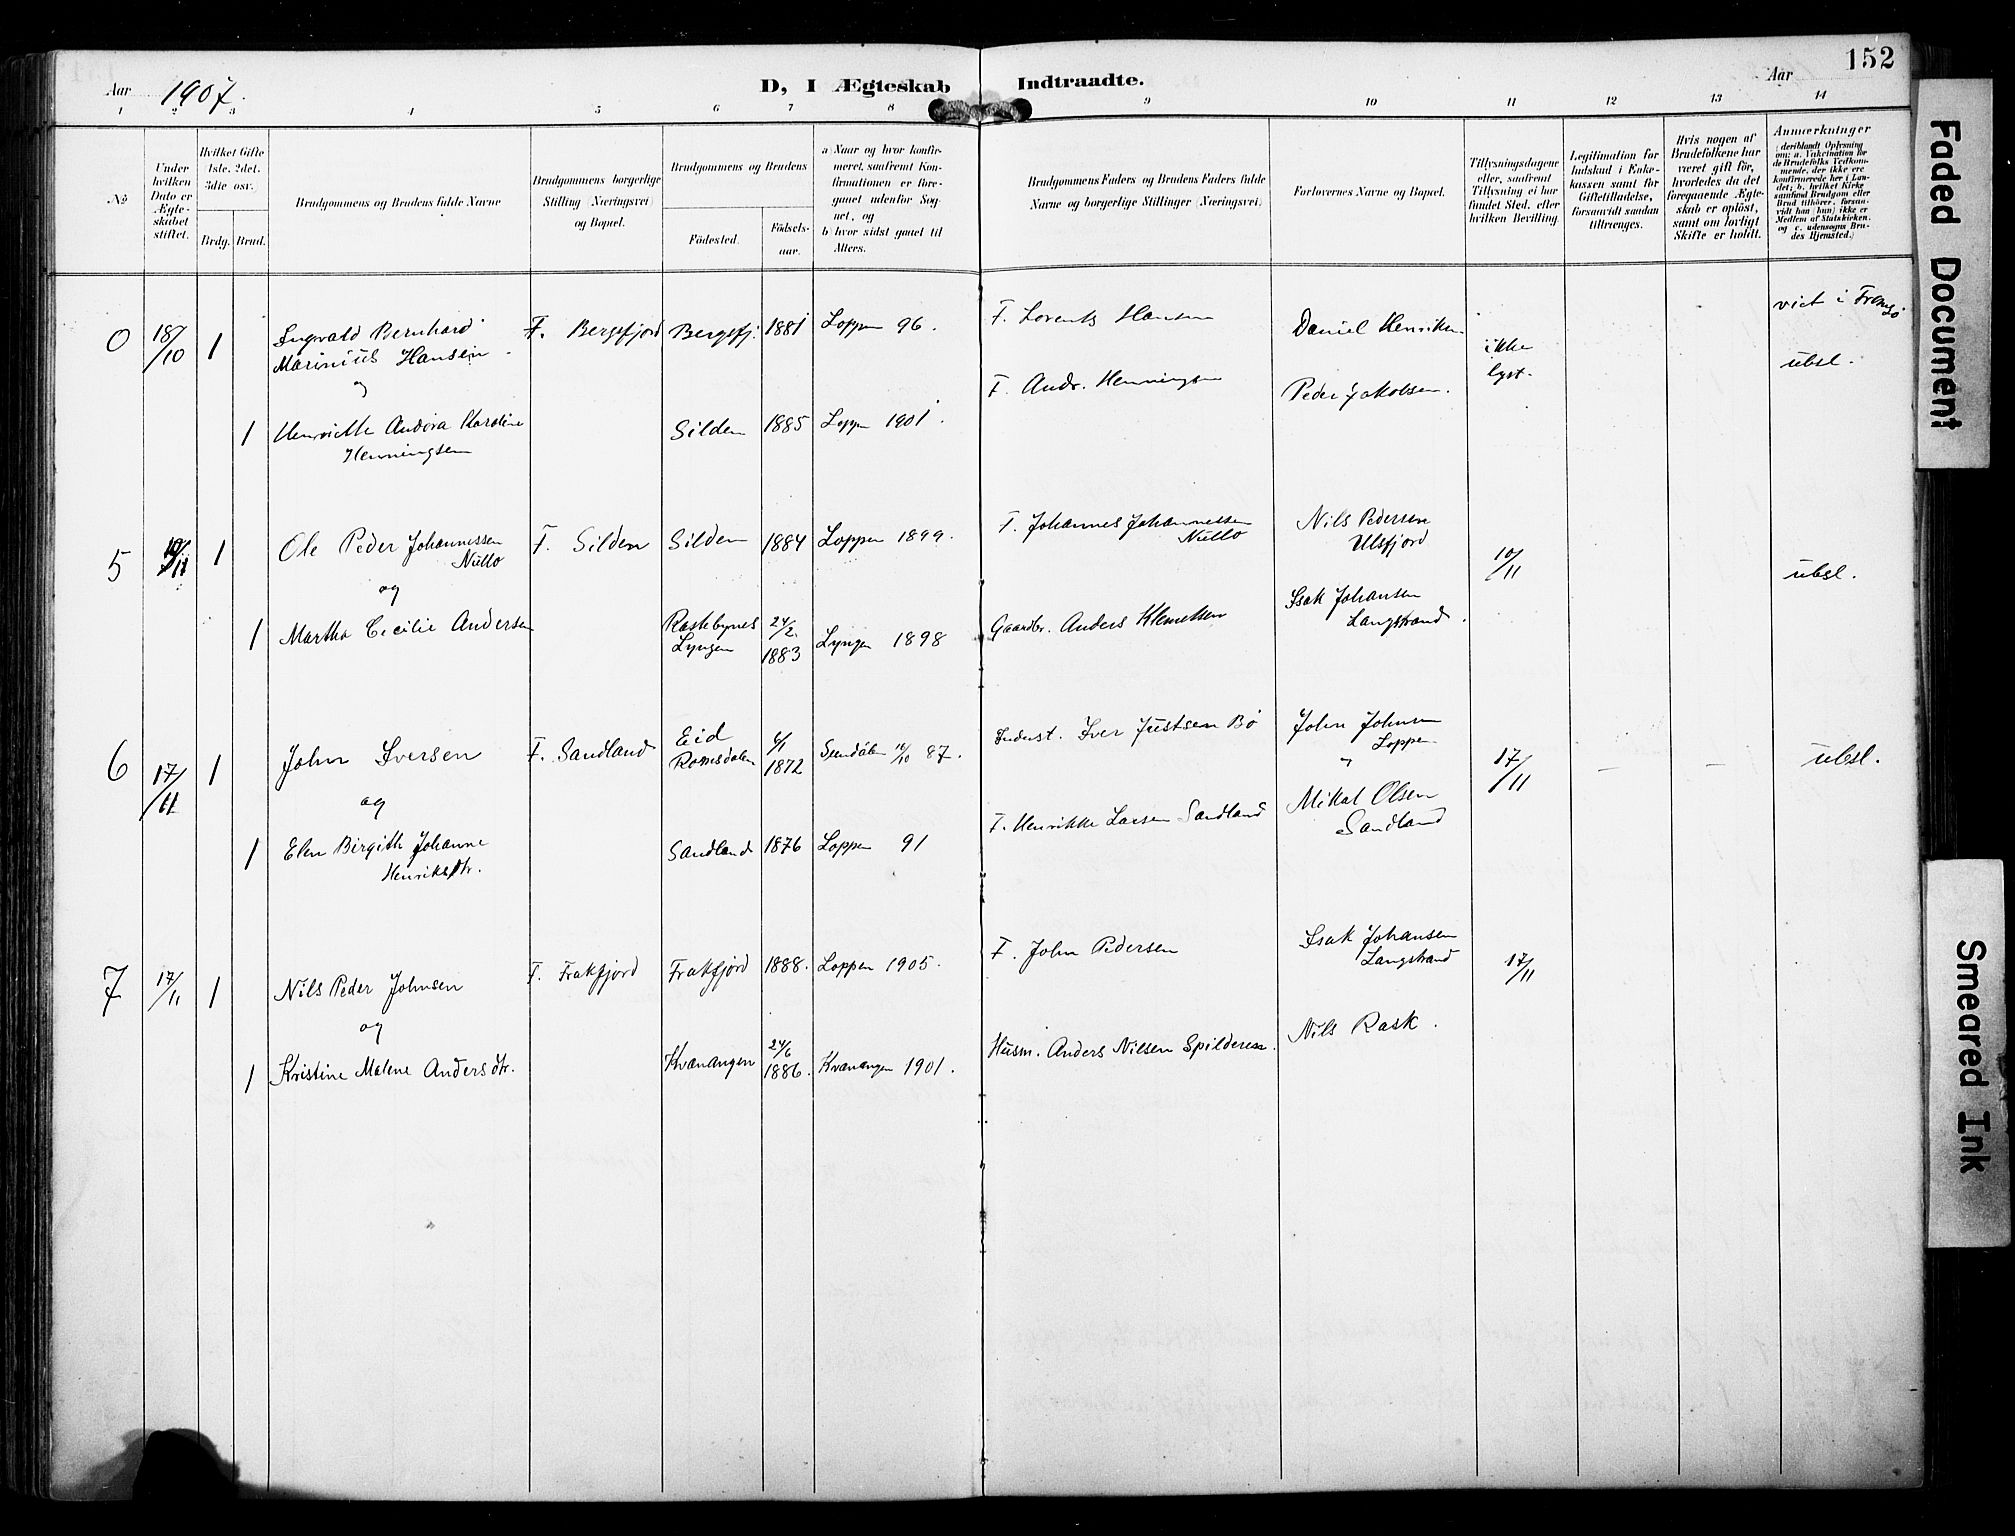 152
Aar 1907.
D, I Ægteskab Indtraadte.
Aar
1 2 3 4 5 6 7 8 9 10 11 12 13 14
No
Under hvilken Dato er Ægteskabet stiftet.
Hvilket Gifte (1ste, 2det, 3die osv.)
Brdg. Brud.
Brudgommens og Brudens fulde Navne
Brudgommens borgerlige Stilling (Næringsvei) og Bopæl.
Brudgommens og Brudens
Födested. Födselsaar.
a) Naar og hvor konfirmeret, saafremt Konfirmationen er foregaaet udenfor Sognet, og
b) hvor sidst gaaet til Alters.
Brudgommens Faders og Brudens Faders fulde Navne og borgerlige Stillinger (Næringsvei)
Forlovernes Navne og Bopæl.
Tillysningsdagene eller, saafremt Tillysning ei har fundet Sted, efter hvilken Bevilling.
Legitimation for Indskud i Enkekassen samt for Giftetilladelse, forsaavidt saadan tiltrænges.
Hvis nogen af Brudefolkene har været gift för, hvorledes da det foregaaende Ægteskab er oplöst, samt om lovligt Skifte er holdt.
Anmærkninger
(deriblandt Oplysning om: a. Vakcination for de Brudefolks Vedkommende, der ikke ere konfirmerede her i Landet; b. hvilket Kirkesamfund Brudgom eller Brud tilhörer, forsaavidt han (hun) ikke er Medlem af Statskirken, og c. udensogns Brudes Hjemsted.)
0 18/10 1 Ingvald Bernhard Marinius Hansen F. Bergsfjord Bergsfj. 1881 Loppen 96. F. Lorents Hansen Daniel Henriksen ikke lyst. viet i Tromsö
ubsl.
og
1 Henriette Andora Karoline Henningsen Silden 1885 Loppen 1901. F. Andr. Henningsen Peder Jakobsen.
5 10/11 1 Ole Peder Johannessen Nullo F. Silden Silden 1884 Loppen 1899. F. Johannes Johannessen Nullo Nils Pedersen Ulsfjord 10/11 ubsl.
og
1 Martha Cecilie Andersen Raskebynes Lyngen 24/2 1883 Lyngen 1898 Gaardbr. Anders Klemetsen Isak Johansen Langstrand.
6 17/11 1 John Iversen F. Sandland Eid Romsdalen 6/1 1872 Sundalen 16/10 87. Inderst. Iver Justsen Bö John Johnsen Loppen 17/11 — — ubsl.
og
1 Elen Birgith Johanne Henriksdtr. Sandland 1876 Loppen 91 F. Henrikke Larsen Sandland Mikal Olsen Sandland
7 17/11 1 Nils Peder Johnsen F. Frakfjord Frakfjord 1888. Loppen 1905. F. John Pedersen Isak Johansen Langstrand 17/11
og
1 Kristine Malene Andersdtr. Kvænangen 24/6 1886. Kvænangen 1901. Husm. Anders Nilsen Spilderen. Nils Rask.
Faded Document
Smeared Ink